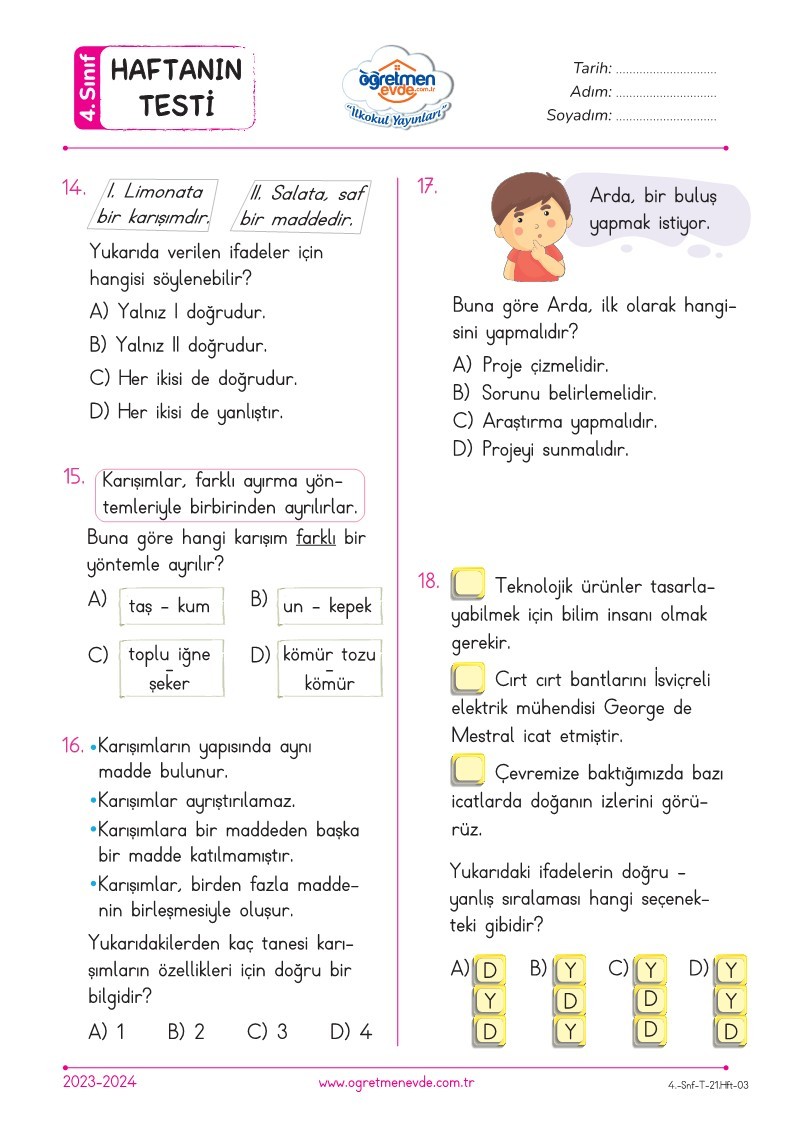 4. Sınıf
HAFTANIN
TESTİ
öğretmen
evde.com.tr
"İlkokul Yayınları"
Tarih: ..............................
Adım: ..............................
Soyadım: ..............................
14.
I. Limonata
bir karışımdır.
II. Salata, saf
bir maddedir.
Yukarıda verilen ifadeler için
hangisi söylenebilir?
A) Yalnız I doğrudur.
B) Yalnız II doğrudur.
C) Her ikisi de doğrudur.
D) Her ikisi de yanlıştır.
15.
Karışımlar, farklı ayırma yön-
temleriyle birbirinden ayrılırlar.
Buna göre hangi karışım farklı bir
yöntemle ayrılır?
A) taş - kum
B) un - kepek
C) toplu iğne
-
şeker
D) kömür tozu
-
kömür
16. •Karışımların yapısında aynı
madde bulunur.
•Karışımlar ayrıştırılamaz.
•Karışımlara bir maddeden başka
bir madde katılmamıştır.
•Karışımlar, birden fazla madde-
nin birleşmesiyle oluşur.
Yukarıdakilerden kaç tanesi karı-
şımların özellikleri için doğru bir
bilgidir?
A) 1 B) 2 C) 3 D) 4
17.
Arda, bir buluş
yapmak istiyor.
Buna göre Arda, ilk olarak hangi-
sini yapmalıdır?
A) Proje çizmelidir.
B) Sorunu belirlemelidir.
C) Araştırma yapmalıdır.
D) Projeyi sunmalıdır.
18. Teknolojik ürünler tasarla-
yabilmek için bilim insanı olmak
gerekir.
Cırt cırt bantlarını İsviçreli
elektrik mühendisi George de
Mestral icat etmiştir.
Çevremize baktığımızda bazı
icatlarda doğanın izlerini görü-
rüz.
Yukarıdaki ifadelerin doğru -
yanlış sıralaması hangi seçenek-
teki gibidir?
A) D B) Y C) Y D) Y
Y D D Y
D Y D D
2023-2024
www.ogretmenevde.com.tr
4.-Snf-T-21.Hft-03